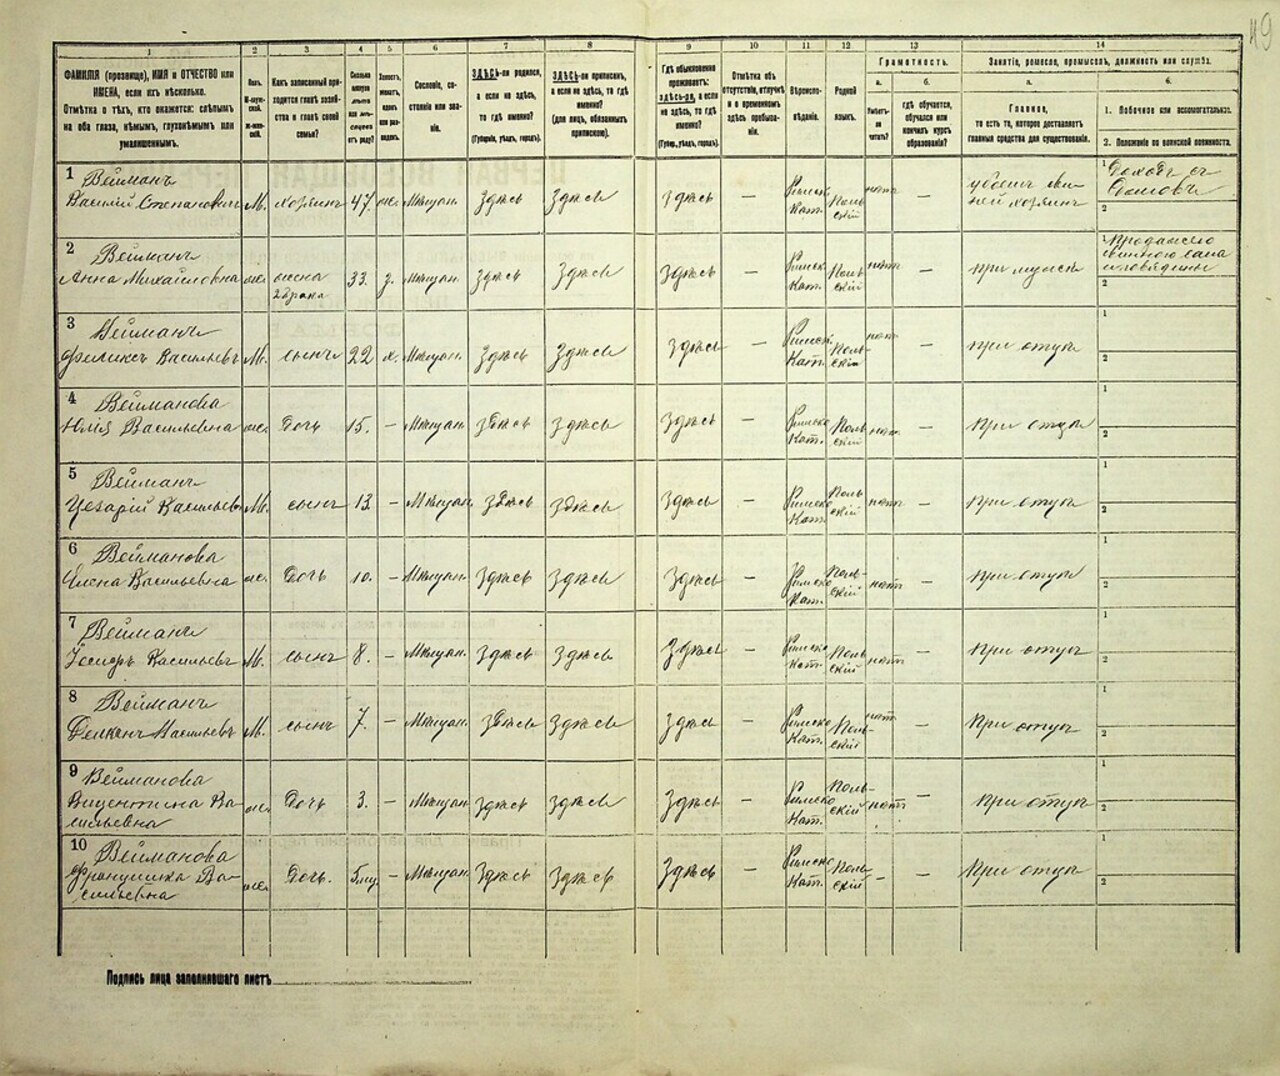 49
1
2
3
4
5
6
7
8
9
10
11
12
13
14
ФАМИЛІЯ (прозвище), ИМЯ и ОТЧЕСТВО или
ИМЕНА, если ихъ нѣсколько.
Отмѣтка о тѣхъ, кто окажется: слѣпымъ
на оба глаза, нѣмымъ, глухонѣмымъ или
умалишеннымъ.
Полъ.
М-мужской.
ж-женскій.
Какъ записанный приходится главѣ хозяйства и главѣ своей
семьи?
Сколько минуло лѣтъ или мѣсяцевъ отъ роду?
Холостъ, женатъ, вдовъ или разведенъ.
Сословіе, состояніе или званіе.
ЗДѢСЬ-ли родился,
а если не здѣсь,
то гдѣ именно?
(Губернія, уѣздъ, городъ).
ЗДѢСЬ-ли приписанъ,
а если не здѣсь, то гдѣ
именно?
(для лицъ, обязанныхъ
припискою).
Гдѣ обыкновенно
проживаетъ:
здѣсь-ли, а если
не здѣсь, то гдѣ
именно?
(Губер., уѣздъ, городъ).
Отмѣтка объ
отсутствіи, отлучкѣ
и о временномъ
здѣсь пребываніи.
Вѣроисповѣданіе.
Родной
языкъ.
Грамотность.
а.
Умѣетъ-ли
читать?
б.
гдѣ обучается,
обучался или
кончилъ курсъ
образованія?
Занятіе, ремесло, промыселъ, должность или служба.
а.
Главная,
то есть то, которое доставляетъ
главныя средства для существованія.
б.
1. Побочное или вспомогательное.
2. Положеніе по воинской повинности.
1 Вейманъ
Василій Степановичъ М. хозяинъ 47. же. Мѣщан. Здѣсь Здѣсь Здѣсь — Римск. Кат. Польскій нѣтъ — убоемъ свиней хозяинъ 1 Доходъ съ домовъ 2
2 Вейманъ
Анна Михайловна же. жена 2 брака 33. з. Мѣщан. Здѣсь Здѣсь Здѣсь — Римск. Кат. Польскій нѣтъ — при мужѣ 1 Продажею свинного сала 2
3 Вейманъ
Феликсъ Васильевъ М. сынъ 22 х. Мѣщан. Здѣсь Здѣсь Здѣсь — Римск. Кат. Польскій нѣтъ — при отцѣ 1 2
4 Вейманова
Юлія Васильевна же. Дочь 15. — Мѣщан. Здѣсь Здѣсь Здѣсь — Римско Кат. Польскій нѣтъ — при отцѣ 1 2
5 Вейманъ
Цезарій Васильевъ М. сынъ 13. — Мѣщан. Здѣсь Здѣсь Здѣсь — Римско Кат. Польскій нѣтъ — при отцѣ 1 2
6 Вейманова
Елена Васильевна же. Дочь 10. — Мѣщан. Здѣсь Здѣсь Здѣсь — Римско Кат. Польскій нѣтъ — при отцѣ 1 2
7 Вейманъ
Іосифъ Васильевъ М. сынъ 8. — Мѣщан. Здѣсь Здѣсь Здѣсь — Римско Кат. Польскій нѣтъ — при отцѣ 1 2
8 Вейманъ
Васильевъ М. сынъ 7. — Мѣщан. Здѣсь Здѣсь Здѣсь — Римско Кат. Польскій нѣтъ — при отцѣ 1 2
9 Вейманова
Вицентина Васильевна же. Дочь 3. — Мѣщан. Здѣсь Здѣсь Здѣсь — Римско Кат. Польскій нѣтъ — при отцѣ 1 2
10 Вейманова
Францишка Васильевна же. Дочь. 5 — Мѣщан. Здѣсь Здѣсь Здѣсь — Римско Кат. Польскій — — При отцѣ 1 2
Подпись лица заполнявшаго листъ